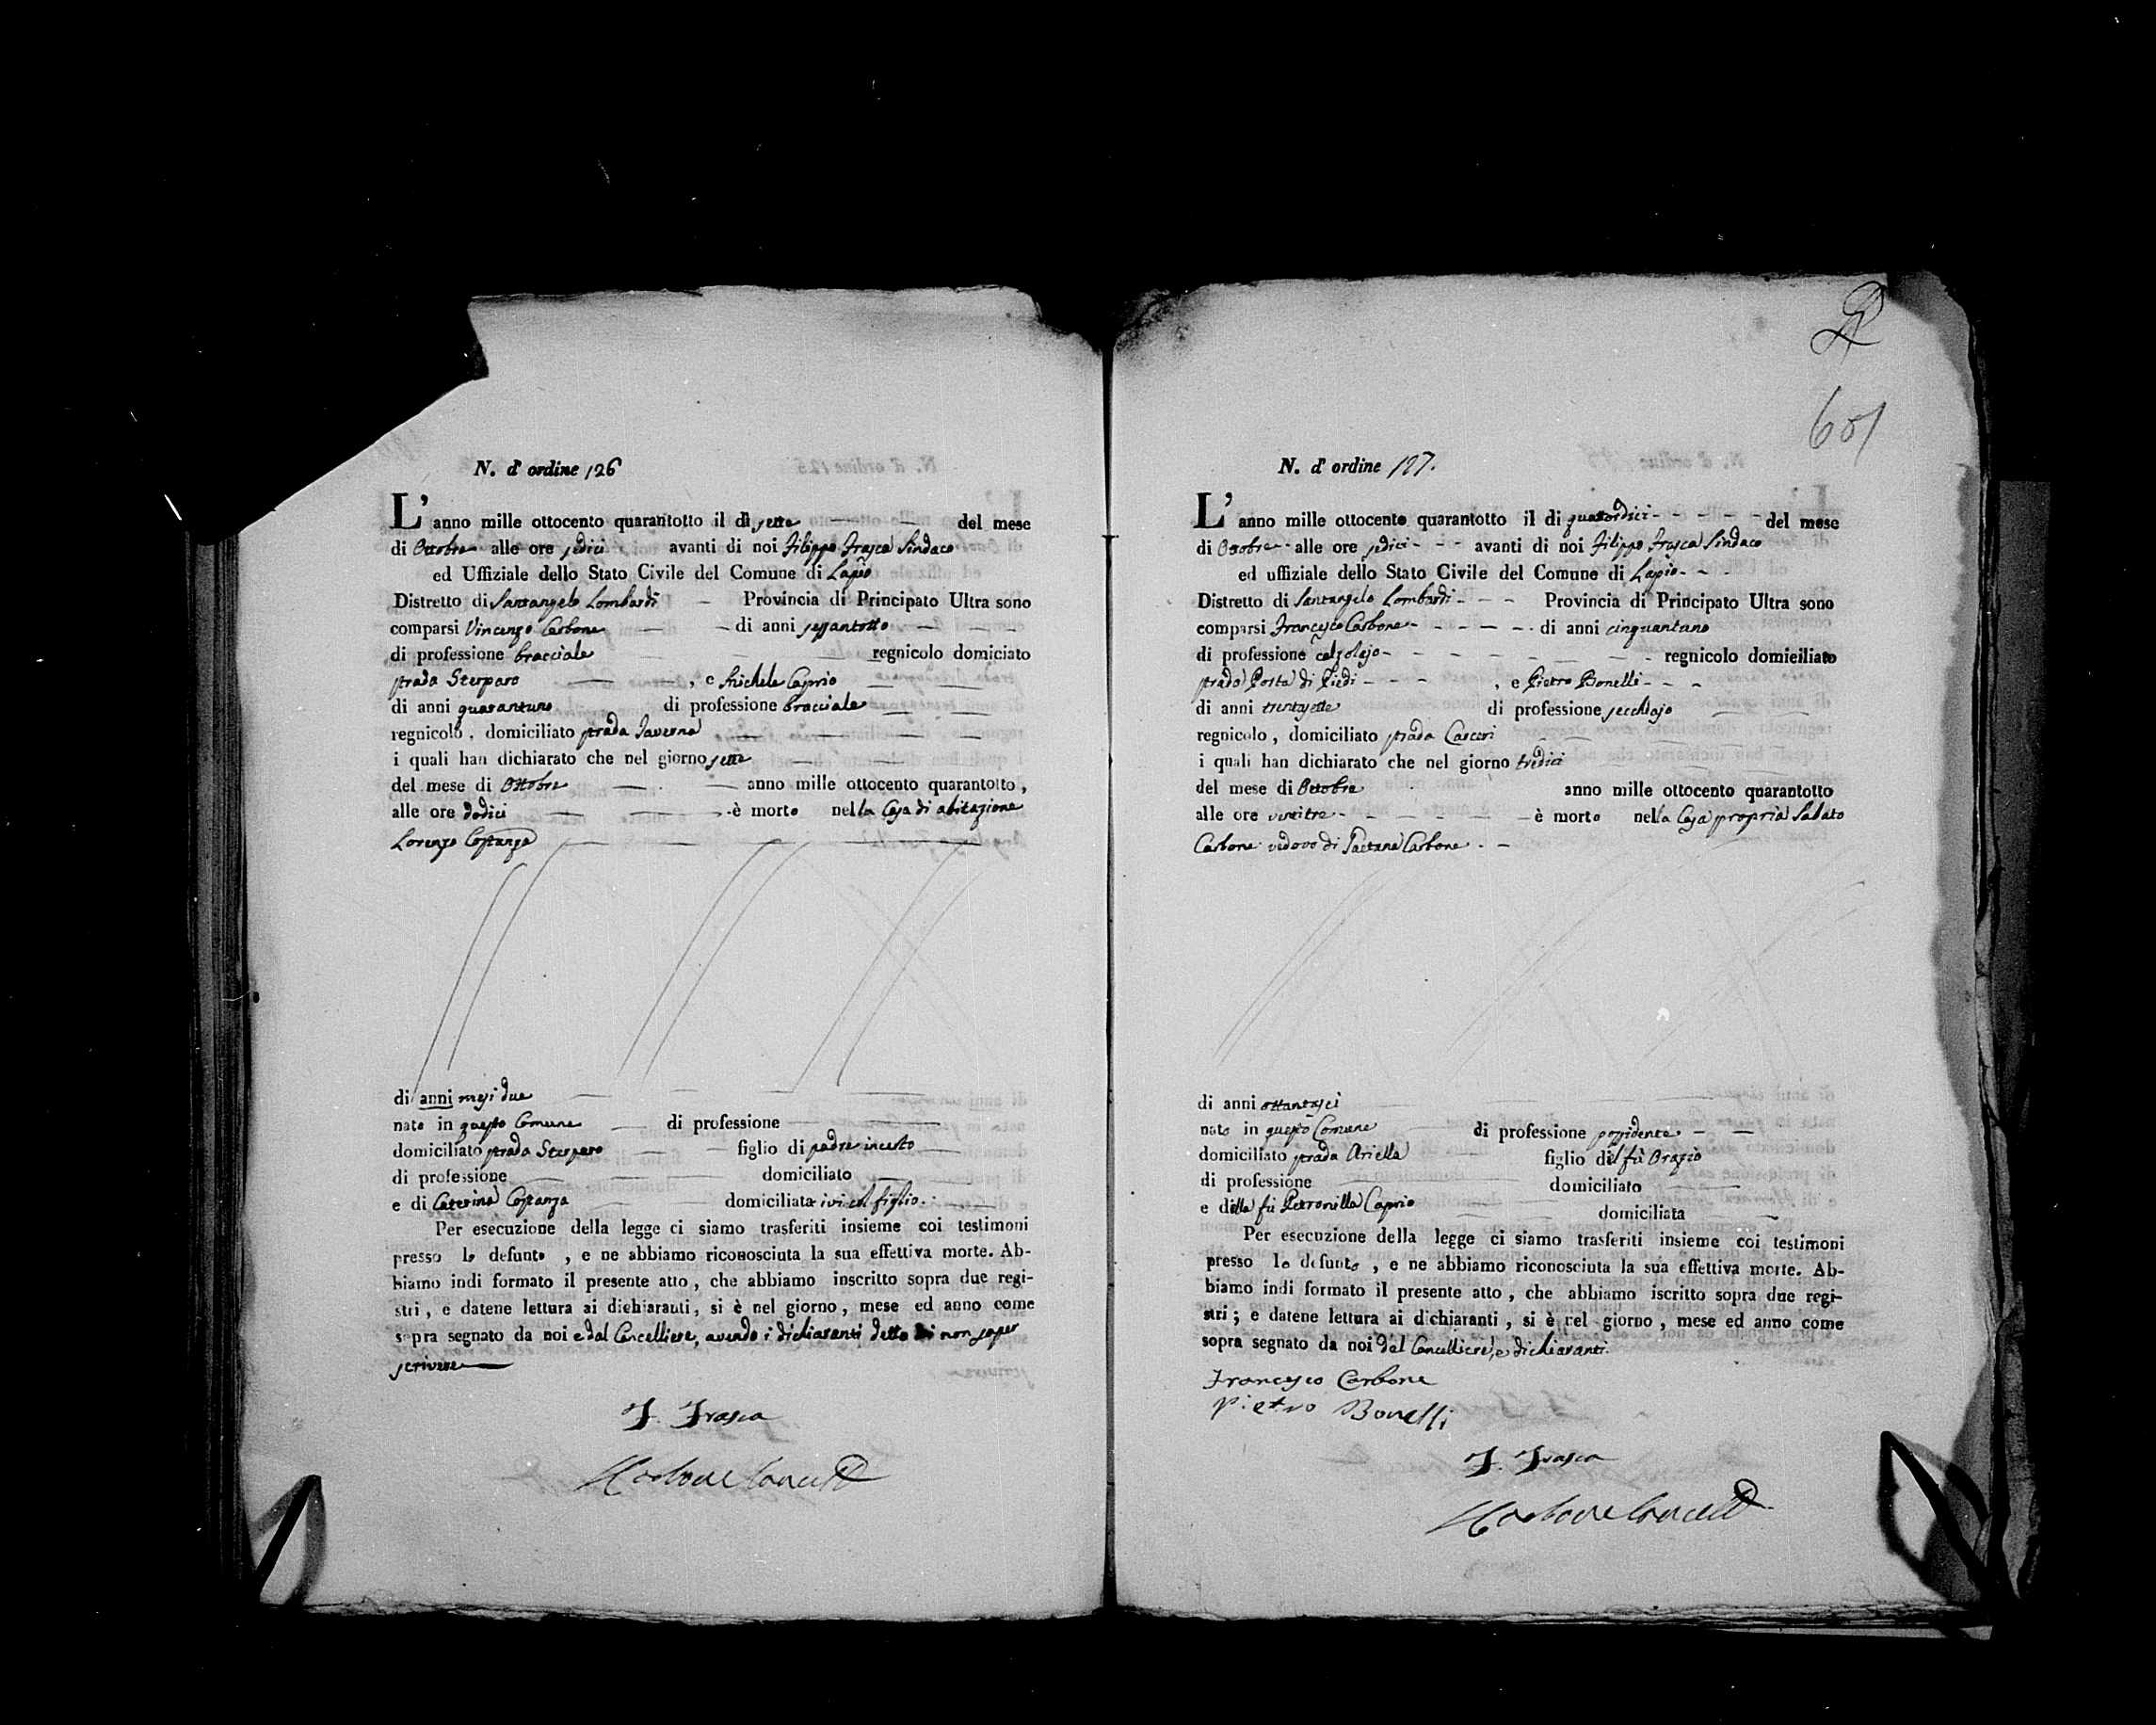 N. d' ordine 126
L' anno mille ottocento quarantotto il dì sette del mese
di Ottobre alle ore sedici avanti di noi Filippo Frasca Sindaco
ed Uffiziale dello Stato Civile del Comune di Lapio
Distretto di Santangelo Lombardi Provincia di Principato Ultra sono
comparsi Vincenzo Carbone di anni sessantotto
di professione bracciale regnicolo domiciato
strada Sterparo , e Michele Caprio
di anni quarantuno di professione bracciale
regnicolo, domiciliato strada Taverna
i quali han dichiarato che nel giorno sette
del mese di Ottobre anno mille ottocento quarantotto,
alle ore dodici è morto nella Casa di abitazione
Lorenzo Costanza
di anni mesi due
nato in questo Comune di professione
domiciliato strada Sterparo figlio di padre incerto
di professione domiciliato
e di Caterina Costanza domiciliata ivi col figlio.
Per esecuzione della legge ci siamo trasferiti insieme coi testimoni
presso lo defunto , e ne abbiamo riconosciuta la sua effettiva morte. Ab-
biamo indi formato il presente atto, che abbiamo inscritto sopra due regi-
stri, e datene lettura ai dichiaranti, si è nel giorno, mese ed anno come
sopra segnato da noi e dal Cancelliere, avendo i dichiaranti detto di non saper
scrivere
F. Frasca
Carbone Cancell
N. d' ordine 127.
L' anno mille ottocento quarantotto il di quattordici del mese
di Ottobre alle ore sedici avanti di noi Filippo Frasca Sindaco
ed uffiziale dello Stato Civile del Comune di Lapio
Distretto di Santangelo Lombardi Provincia di Principato Ultra sono
comparsi Francesco Carbone di anni cinquantuno
di professione calzolajo regnicolo domiciliato
strada Porta di Piedi , e Pietro Bonelli
di anni trentasette di professione secchiajo
regnicolo, domiciliato strada Carceri
i quali han dichiarato che nel giorno tredici
del mese di Ottobre anno mille ottocento quarantotto
alle ore ventitre è morto nella Casa propria Sabato
Carbone vedovo di Gaetana Carbone
di anni ottantasei
nato in questo Comune di professione possidente
domiciliato strada Ariella figlio del fù Orazio
di professione domiciliato
e della fù Petronilla Caprio domiciliata
Per esecuzione della legge ci siamo trasferiti insieme coi testimoni
presso lo defunto , e ne abbiamo riconosciuta la sua effettiva morte. Ab-
biamo indi formato il presente atto, che abbiamo iscritto sopra due regi-
stri; e datene lettura ai dichiaranti, si è nel giorno, mese ed anno come
sopra segnato da noi dal Cancelliere, e dichiaranti.
Francesco Carbone
Pietro Bonelli
F. Frasca
Carbone Cancell